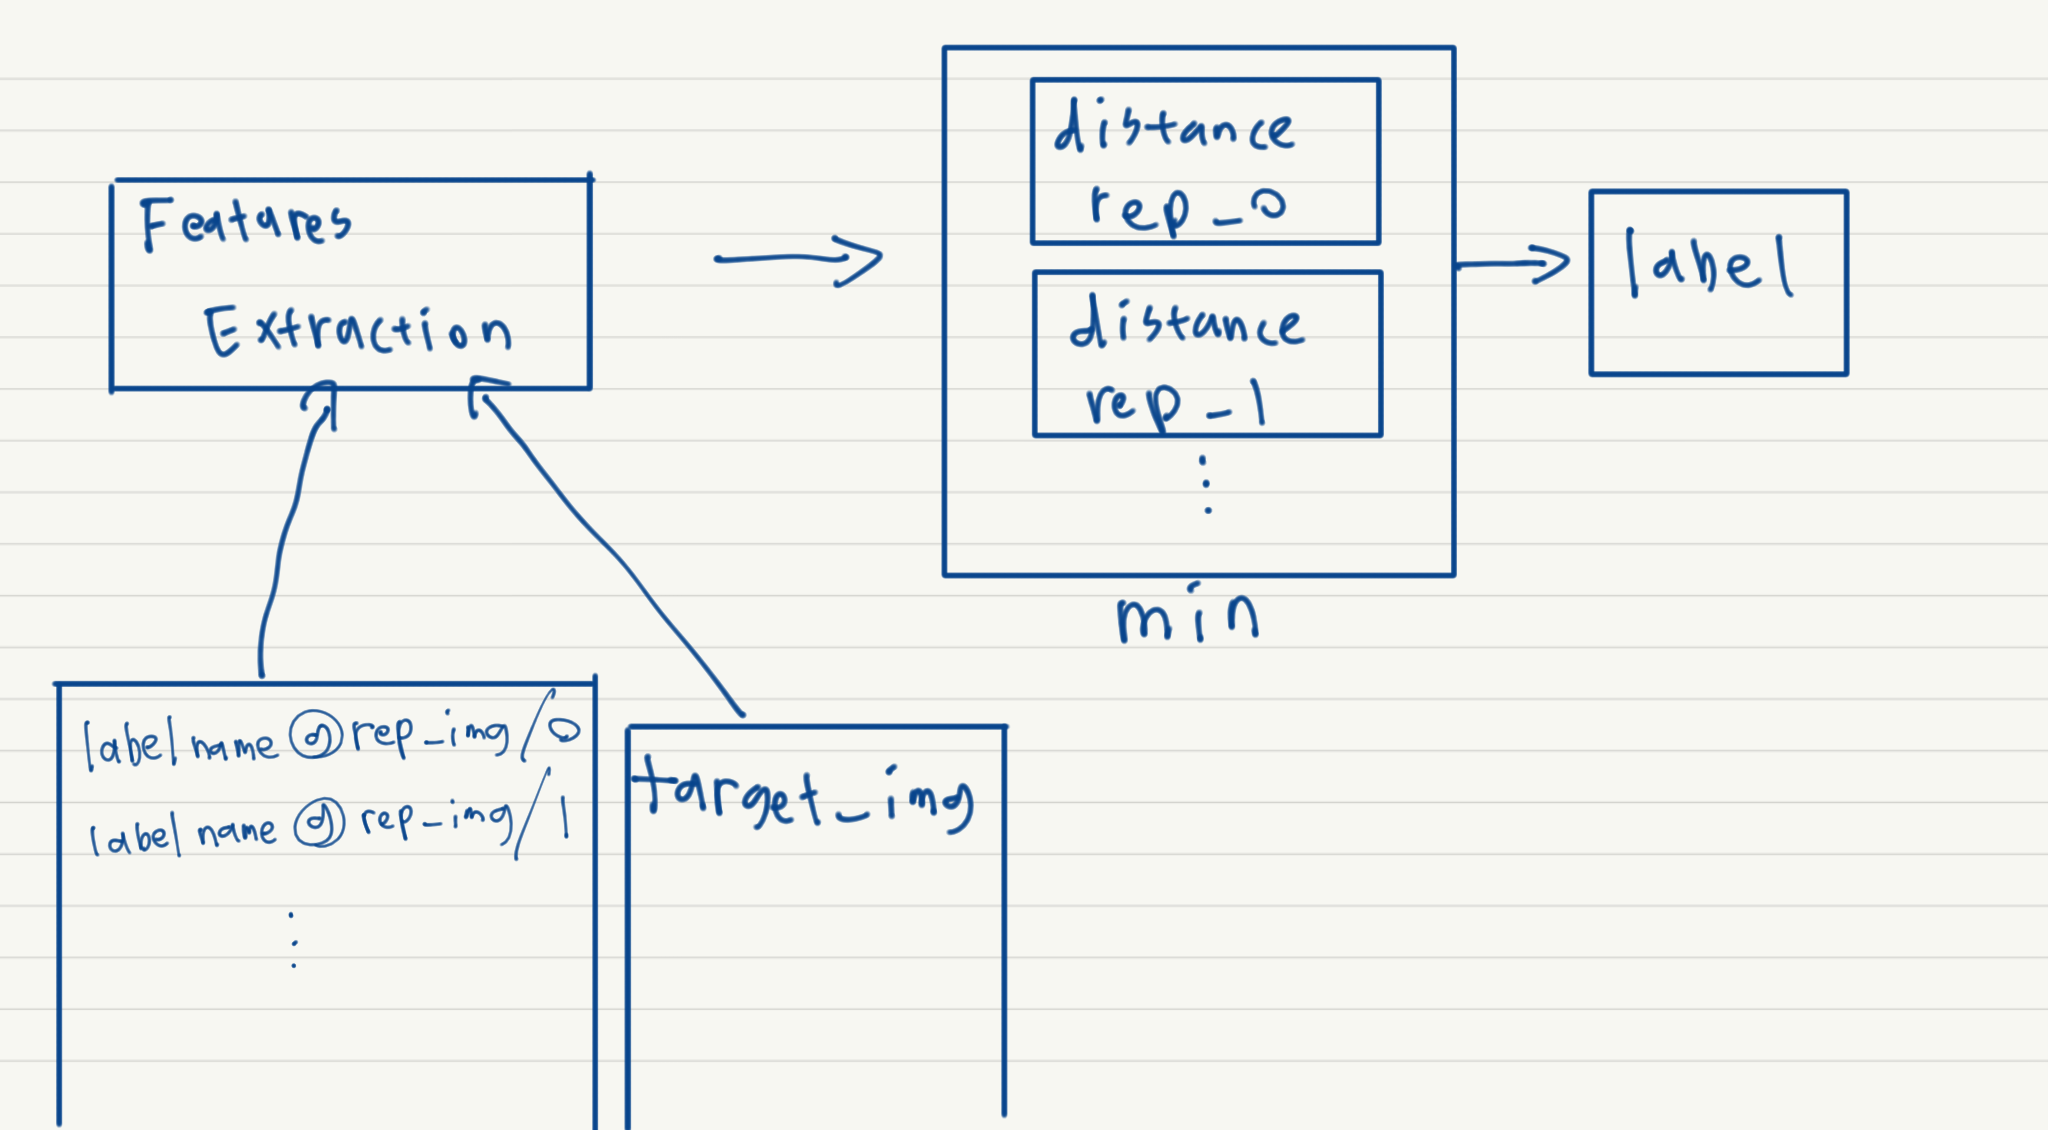 Features
Extraction
distance
rep_0
distance
rep_1
min
label
label name @ rep_img/0
label name @ rep_img/1
target_img